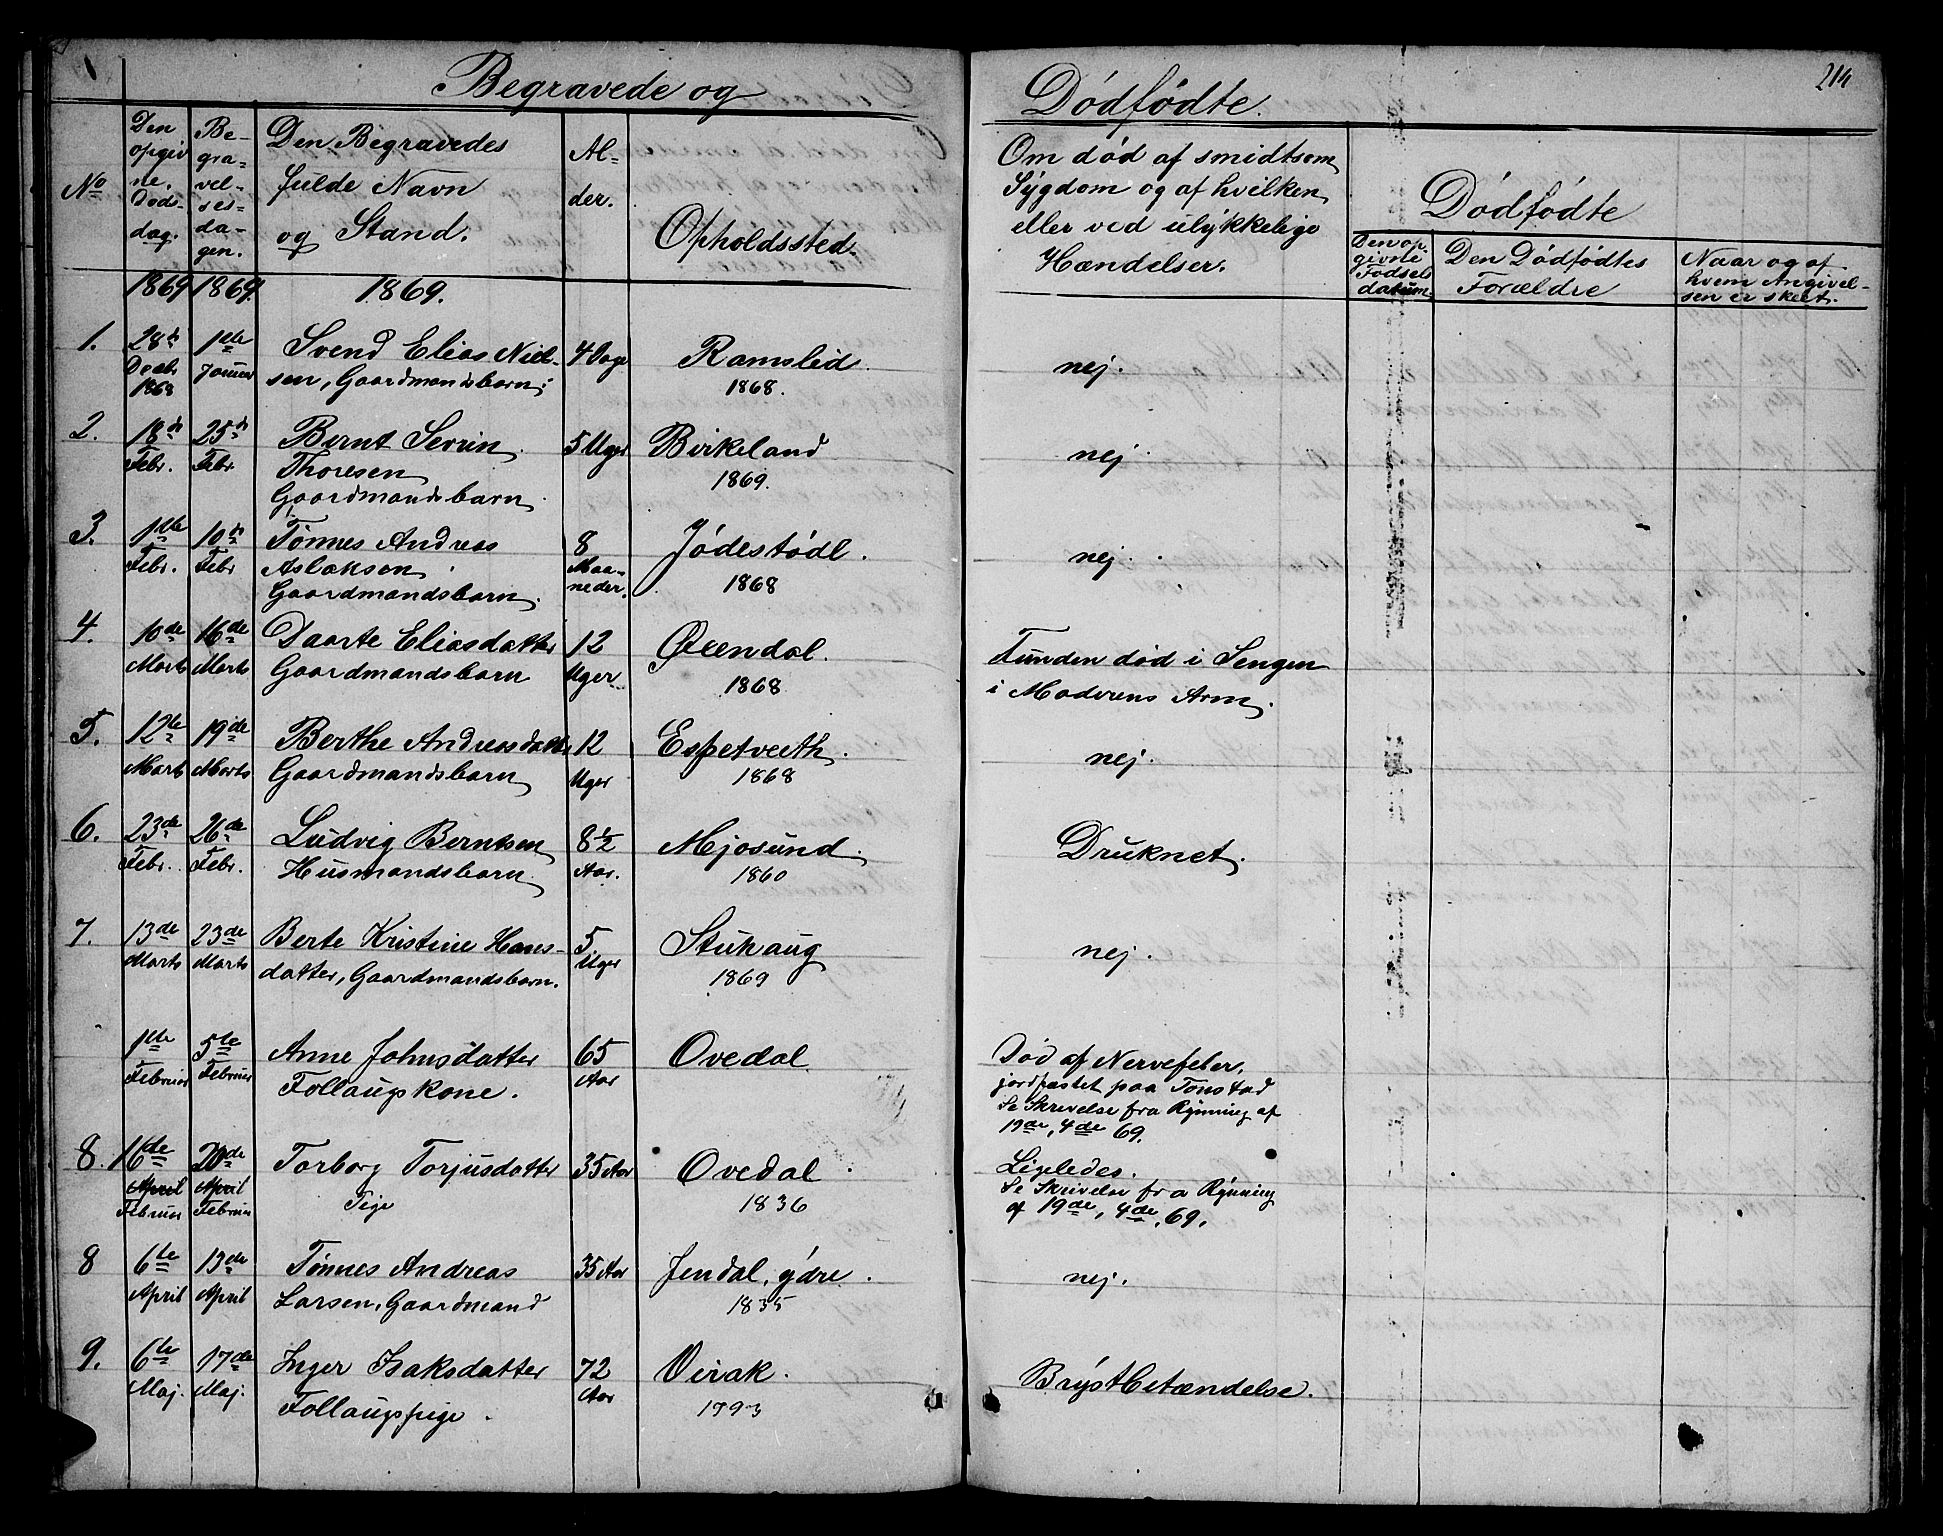 Begravede og
Dödfödte.
214
No
Den opgivne Döds-dag.
Be-gra-vel-ses-da-gen.
Den Begravedes fulde Navn og Stand.
Al-der.
Opholdssted.
Om död af smidtsom Sygdom og af hvilken eller ved ulykkelige Hændelser.
Dödfödte
Den op-givne Födsels datum.
Den Dödfödtes Forældre
Naar og af hvem Angivel-sen er skeet.
1869 1869. 1869.
1. 28de Decbr 1868 1ste Januar Svend Elias Niel- 4 Dage Ramslid. nej.
sen, Gaardmandsbarn. 1868.
2. 18de Febr. 25de Febr. Bernt Serrin 5 Uger Birkeland nej.
Thoresen 1869.
Gaardmandsbarn.
3. 1ste Febr. 10de Febr Tönnes Andreas 8 Maa-neder. Jödestödl. nej.
Aslaksen 1868
Gaardmandsbarn.
4. 10de Marts 16de Marts Daarte Eliasdatter 12 Uger Öiendal. Funden död i Sengen
Gaardmandsbarn 1868 i Moderens Arm.
5. 12te Marts 19de Marts Berthe Andreasdatter 12 Uger Espetveeth. nej.
Gaardmandsbarn 1868
6. 23de Febr. 26de Febr. Ludvig Berntsen 8½ Aar. Mjosund. Druknet.
Husmandsbarn. 1860
7. 13de Marts 23de Marts Berte Kristine Hans- 5 Uger Stuhaug nej.
datter, Gaardmandsbarn. 1869
1ste Februar 5te Februar Anne Johnsdatter 65 Aar Ovedal Död af Nervefeber,
Follaugskone. jordfæstet paa Tonstad
Se Skrivelse fra Rynning af
19de, 4de 69.
8. 16de April Februar 20de April Februar Torborg Torjusdatter 35 Aar Ovedal Ligeledes.
Pige 1836 Se Skrivelse fra Rynning
af 19de, 4de, 69.
8 6te April 13de April Tönnes Andreas 35 Aar Jendal, ydre. nej.
Larsen, Gaardmand 1835
9. 6te Maj. 17de Maj. Inger Isaksdatter 72 Aar Virak. Brystbetændelse.
Follaugspige. 1793